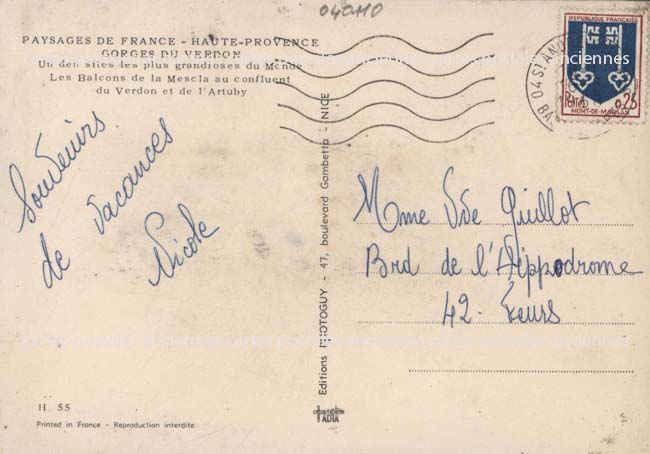 040110
PAYSAGES DE FRANCE - HAUTE-PROVENCE
GORGES DU VERDON
Un des sites les plus grandioses du Monde
Les Balcons de la Mescla au confluent
du Verdon et de l'Artuby
Souvenirs
de vacances
Nicole
H 55
Printed in France - Reproduction interdite
Editions PHOTOGUY - 47, boulevard Gambetta - NICE
REPUBLIQUE FRANÇAISE
POSTES 0,25
MONT-DE-MARSAN
04 ST AND
Mme Vve Guillot
Brd de l'Hippodrome
42. Feurs
anciennes